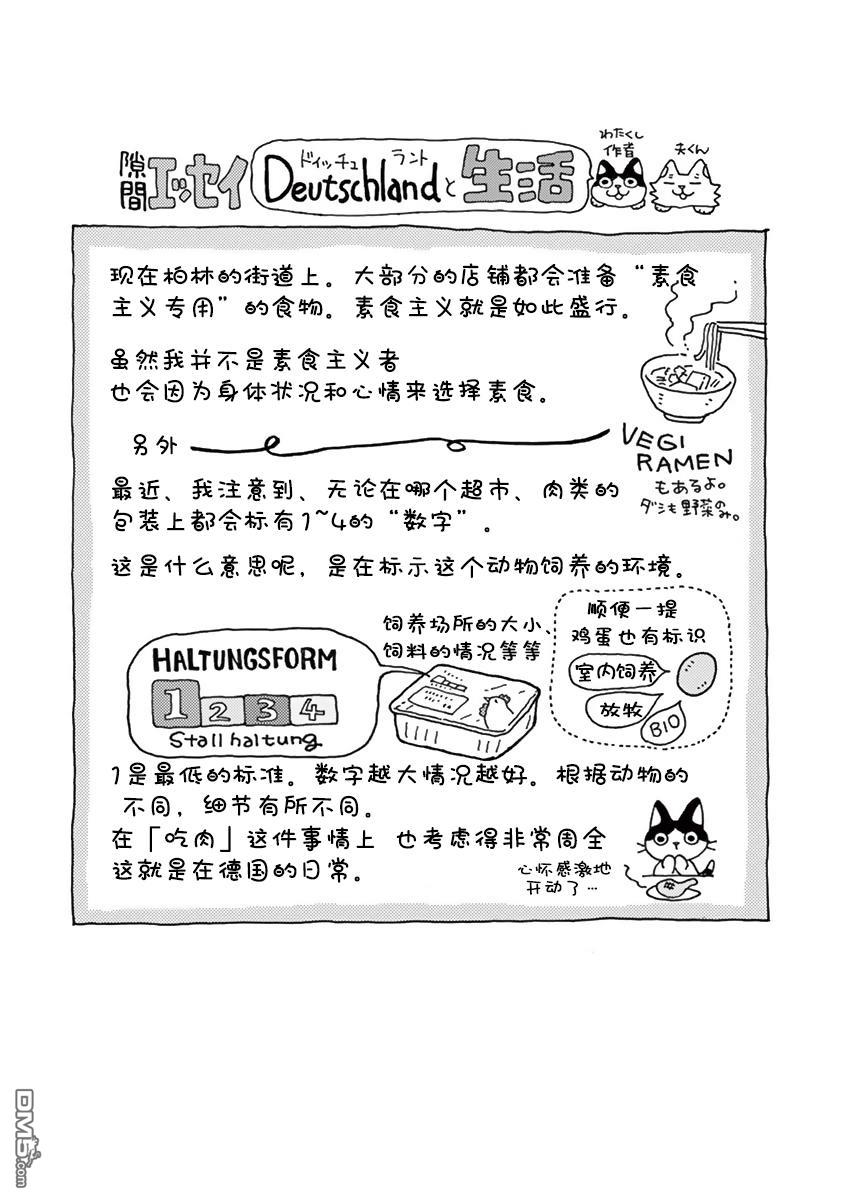 隙間エッセイ
ドイッチュ ラント
Deutschlandと生活
わたくし
作者
夫くん
现在柏林的街道上。大部分的店铺都会准备“素食
主义专用”的食物。素食主义就是如此盛行。
虽然我并不是素食主义者
也会因为身体状况和心情来选择素食。
VEGI
RAMEN
もあるよ。
ダシも野菜のみ。
另外
最近、我注意到、无论在哪个超市、肉类的
包装上都会标有1~4的“数字”。
这是什么意思呢,是在标示这个动物饲养的环境。
HALTUNGSFORM
1 2 3 4
Stallhaltung
饲养场所的大小、
饲料的情况等等
顺便一提
鸡蛋也有标识
室内饲养
放牧
BIO
1是最低的标准。数字越大情况越好。根据动物的
不同,细节有所不同。
在「吃肉」这件事情上 也考虑得非常周全
这就是在德国的日常。
心怀感激地
开动了…
DM5.com